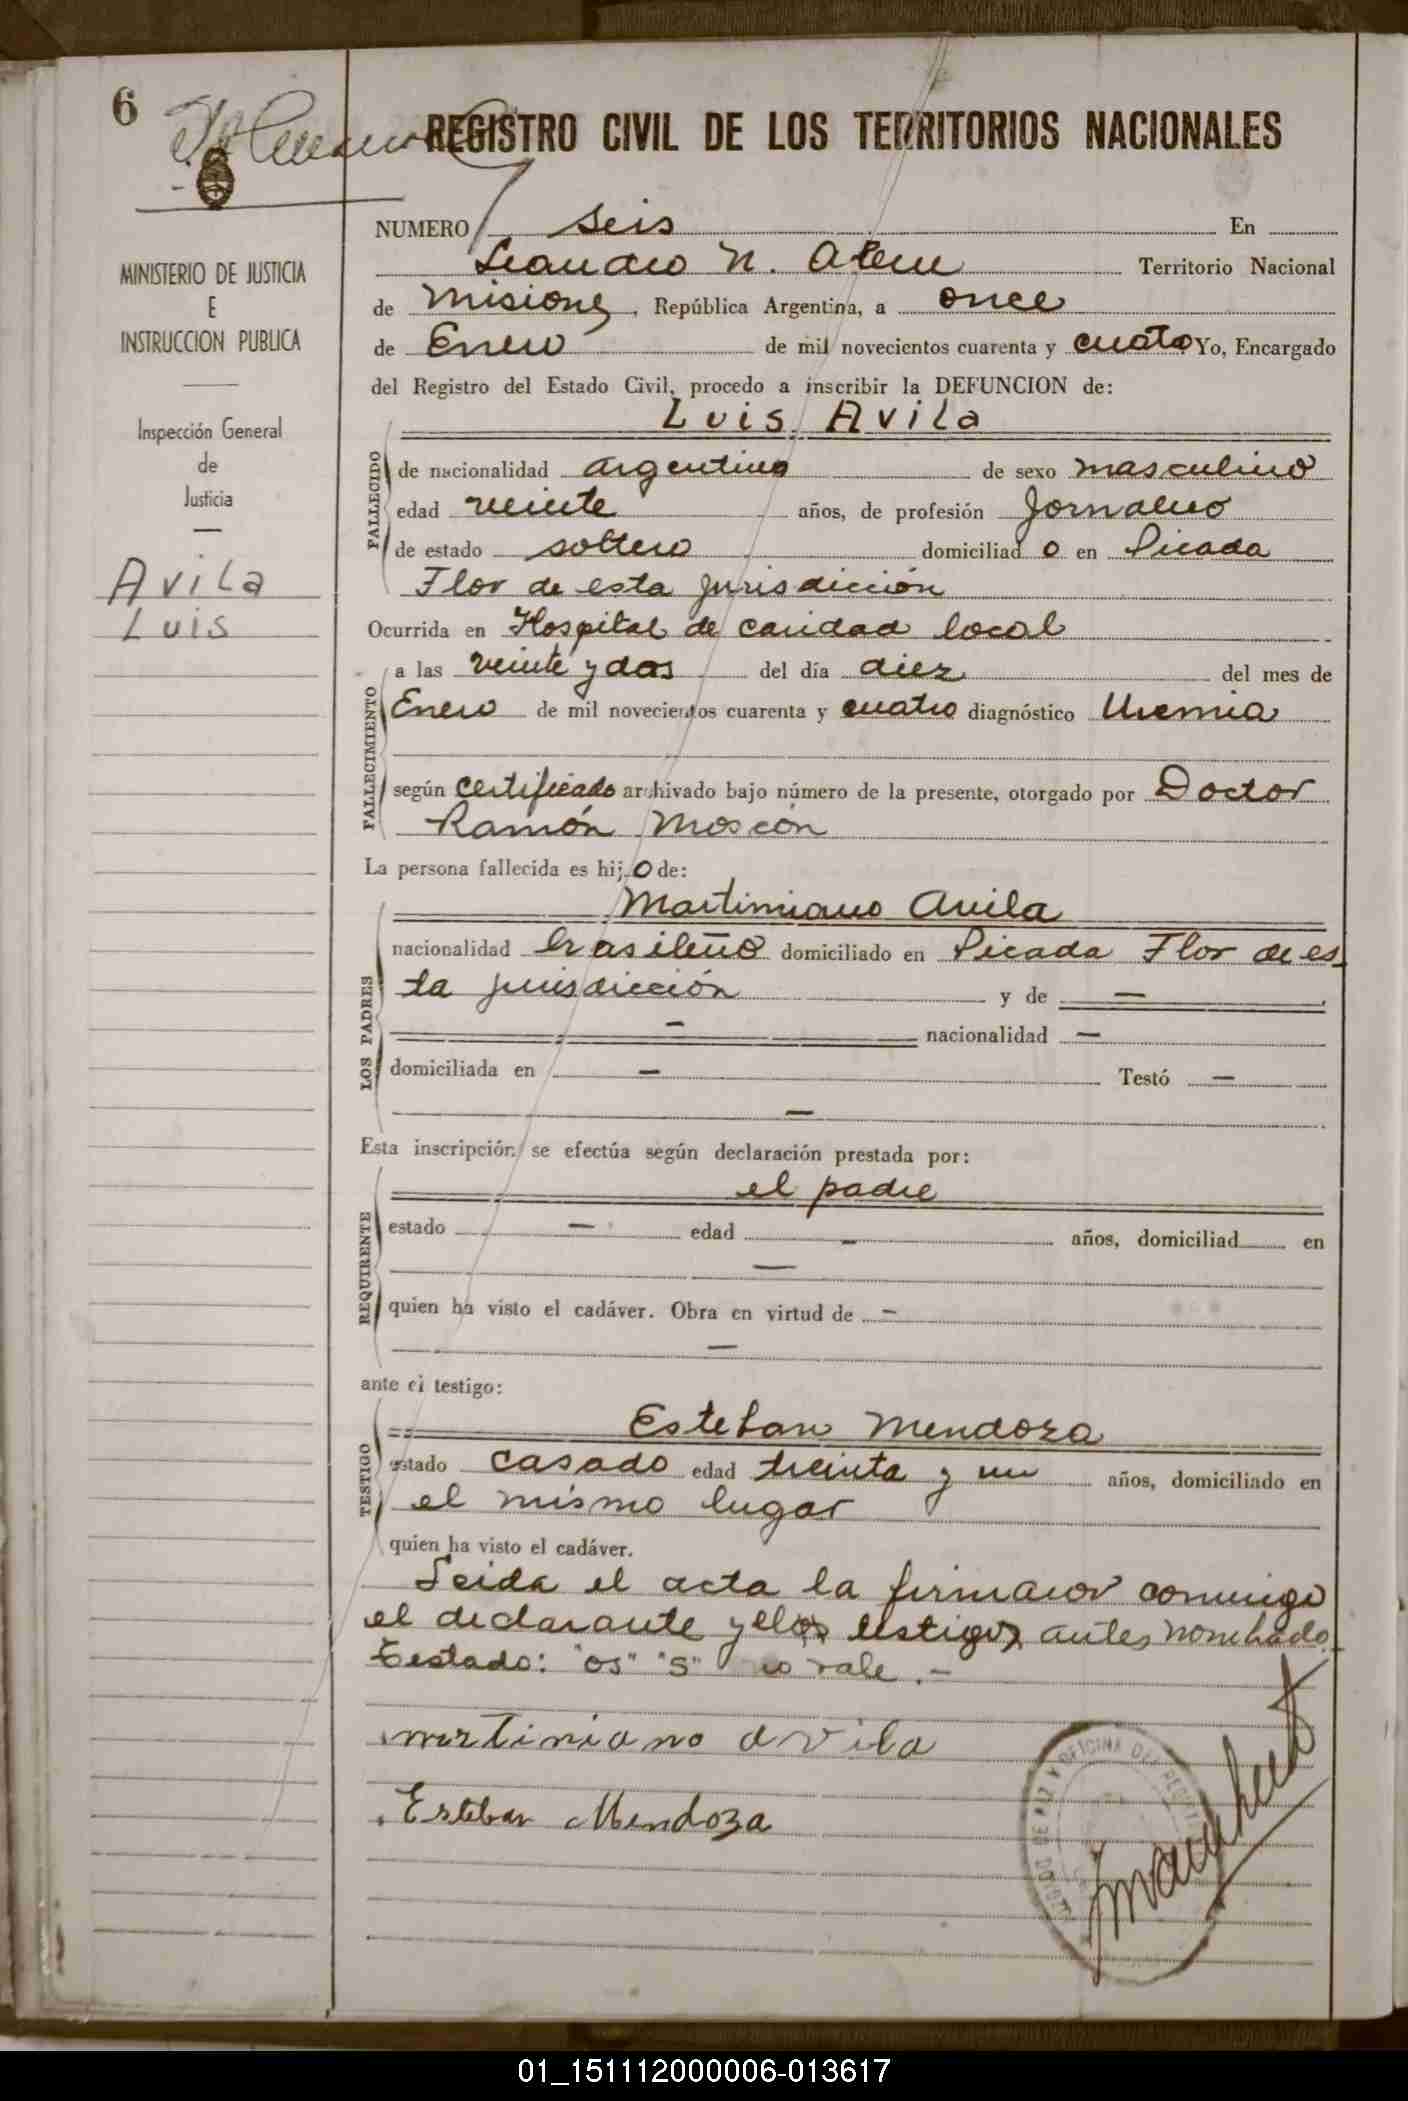 6
REGISTRO CIVIL DE LOS TERRITORIOS NACIONALES
MINISTERIO DE JUSTICIA
E
INSTRUCCION PUBLICA
Inspección General
de
Justicia
Avila
Luis
NUMERO Seis En
Leandro N. Alem Territorio Nacional
de Misiones, República Argentina, a once
de Enero de mil novecientos cuarenta y cuatro Yo, Encargado
del Registro del Estado Civil, procedo a inscribir la DEFUNCION de:
Luis Avila
FALLECIDO
de nacionalidad argentino de sexo masculino
edad veinte años, de profesión Jornalero
de estado soltero domiciliad o en Picada
Flor de esta jurisdicción
Ocurrida en Hospital de caridad local
FALLECIMIENTO
a las veinte y dos del día diez del mes de
Enero de mil novecientos cuarenta y cuatro diagnóstico Uremia
según certificado archivado bajo número de la presente, otorgado por Doctor
Ramón Moscón
La persona fallecida es hij o de:
LOS PADRES
Martimiano Avila
nacionalidad brasileño domiciliado en Picada Flor de es-
ta jurisdicción y de —
— nacionalidad —
domiciliada en — Testó —
—
Esta inscripción se efectúa según declaración prestada por:
REQUIRENTE
el padre
estado — edad — años, domiciliad en
—
quien ha visto el cadáver. Obra en virtud de —
—
ante el testigo:
TESTIGO
Esteban Mendoza
estado casado edad treinta y un años, domiciliado en
el mismo lugar
quien ha visto el cadáver.
Leida el acta la firmaron conmigo
el declarante y el os testigos antes nombrado.
Testado: "os" "s" no vale.-
martiniano avila
Esteban Mendoza
JUZGADO DE PAZ Y OFICINA DEL REGISTRO
01_151112000006-013617